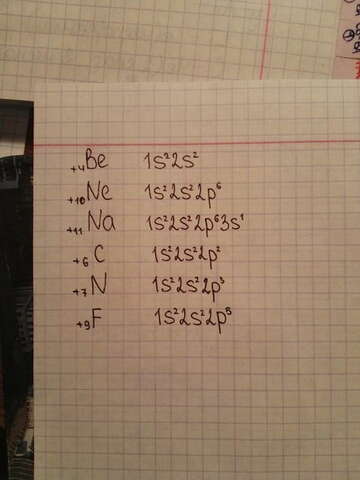 +4Be 1s²2s²
+10Ne 1s²2s²2p⁶
+11Na 1s²2s²2p⁶3s¹
+6C 1s²2s²2p²
+7N 1s²2s²2p³
+9F 1s²2s²2p⁵